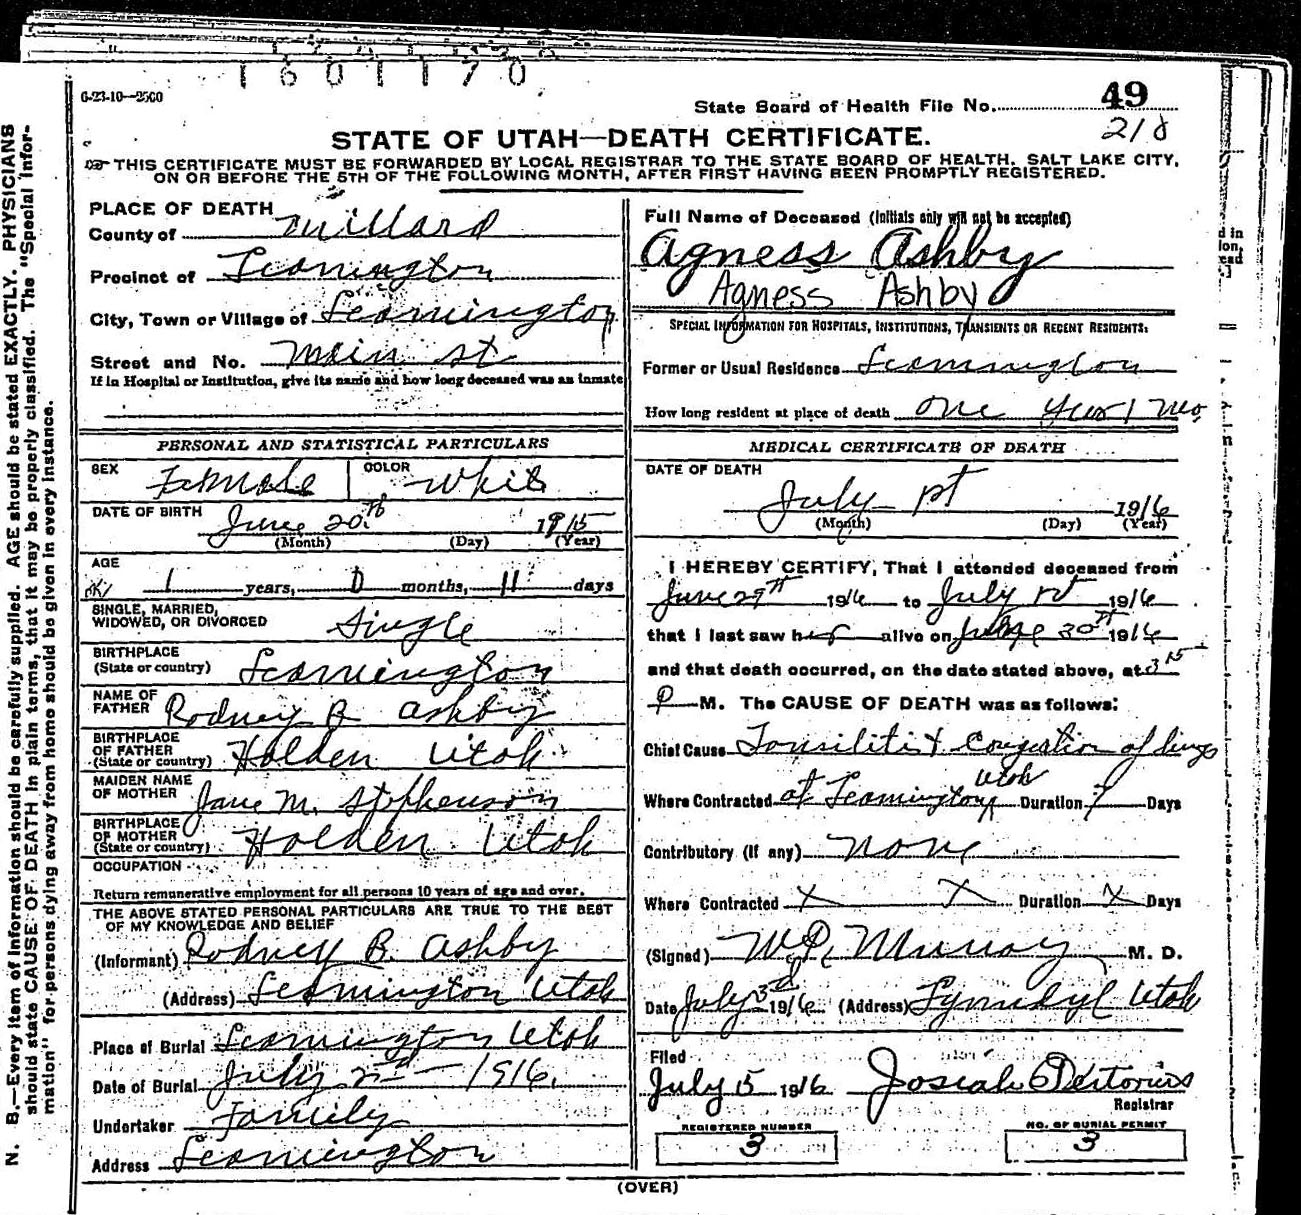 1601170
6-23-10—2500
State Board of Health File No. 49
218
STATE OF UTAH—DEATH CERTIFICATE.
THIS CERTIFICATE MUST BE FORWARDED BY LOCAL REGISTRAR TO THE STATE BOARD OF HEALTH, SALT LAKE CITY,
ON OR BEFORE THE 5TH OF THE FOLLOWING MONTH, AFTER FIRST HAVING BEEN PROMPTLY REGISTERED.
N. B.—Every item of information should be carefully supplied. AGE should be stated EXACTLY. PHYSICIANS
should state CAUSE OF DEATH in plain terms, that it may be properly classified. The "Special Infor-
mation" for persons dying away from home should be given in every instance.
PLACE OF DEATH
County of Millard
Precinct of Leamington
City, Town or Village of Leamington
Street and No. Main st
If in Hospital or Institution, give its name and how long deceased was an inmate
PERSONAL AND STATISTICAL PARTICULARS
SEX Female COLOR White
DATE OF BIRTH June 20th 1915
(Month) (Day) (Year)
AGE
1 years, 0 months, 11 days
SINGLE, MARRIED,
WIDOWED, OR DIVORCED Single
BIRTHPLACE
(State or country) Leamington
NAME OF
FATHER Rodney B Ashby
BIRTHPLACE
OF FATHER
(State or country) Holden Utah
MAIDEN NAME
OF MOTHER Jane M. Stephenson
BIRTHPLACE
OF MOTHER
(State or country) Holden Utah
OCCUPATION
Return remunerative employment for all persons 10 years of age and over.
THE ABOVE STATED PERSONAL PARTICULARS ARE TRUE TO THE BEST
OF MY KNOWLEDGE AND BELIEF
(Informant) Rodney B. Ashby
(Address) Leamington Utah
Place of Burial Leamington Utah
Date of Burial July 2nd 1916.
Undertaker Family
Address Leamington
Full Name of Deceased (Initials only will not be accepted)
Agness Ashby
Agness Ashby
SPECIAL INFORMATION FOR HOSPITALS, INSTITUTIONS, TRANSIENTS OR RECENT RESIDENTS:
Former or Usual Residence Leamington
How long resident at place of death one year 1 mo
MEDICAL CERTIFICATE OF DEATH
DATE OF DEATH
July 1st 1916
(Month) (Day) (Year)
I HEREBY CERTIFY, That I attended deceased from
June 29th 1916 to July 1st 1916
that I last saw her alive on June 30th 1916
and that death occurred, on the date stated above, at 3 15
P M. The CAUSE OF DEATH was as follows:
Chief Cause Tonsilitis & Congestion of lungs
Where Contracted at Leamington Utah Duration 7 Days
Contributory (if any) none
Where Contracted X X Duration X Days
(Signed) W.P. Murray M. D.
Date July 3d 1916 (Address) Lynndyl Utah
Filed
July 5 1916 Josiah
Registrar
REGISTERED NUMBER
3
NO. OF BURIAL PERMIT
3
(OVER)